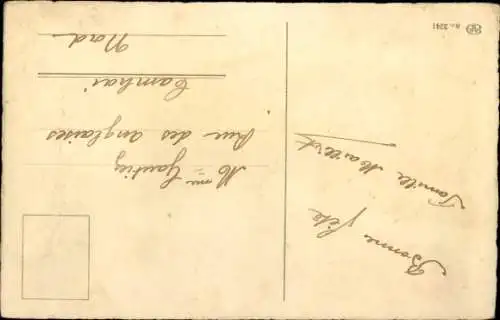 Bonne fête
Famille Maillot
Mme Gautiez
Rue des Anglaises
Cambrai
Nord
No. 3241